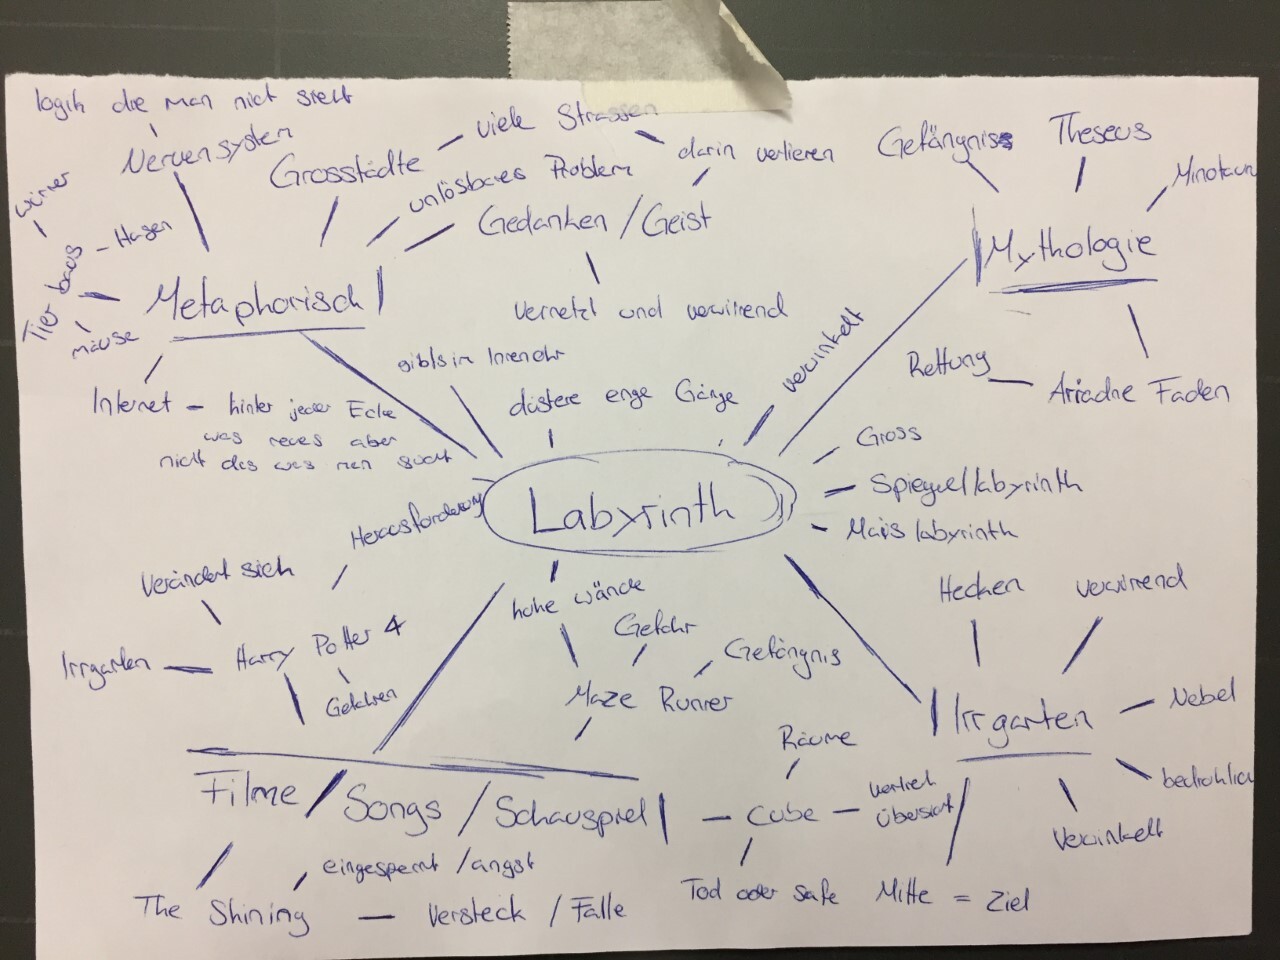 logik die man nicht sieht
Nervensystem
Grosstädte
viele Strassen
darin verlieren
unlösbares Problem
Gedanken / Geist
Vernetzt und verwirrend
Würmer
Tier baus
Hasen
mäuse
Metaphorisch
Internet - hinter jeder Ecke
was neues aber
nicht das was man sucht
Gefängniss
Theseus
Minotaur
Mythologie
Rettung
Ariadne Faden
gibts im Innenohr
düstere enge Gänge
verwinkelt
Gross
Spiegellabyrinth
Mais labyrinth
Labyrinth
Herausforderung
Verändert sich
Irrgarten
Harry Potter 4
Gefahren
hohe wände
Gefahr
Gefängnis
Maze Runner
Hecken
verwirrend
Nebel
Irrgarten
bedrohlich
Verwinkelt
Mitte = Ziel
Filme / Songs / Schauspiel
Räume
Cube
übersicht
Tod oder safe
The Shining
eingesperrt / angst
Versteck / Falle